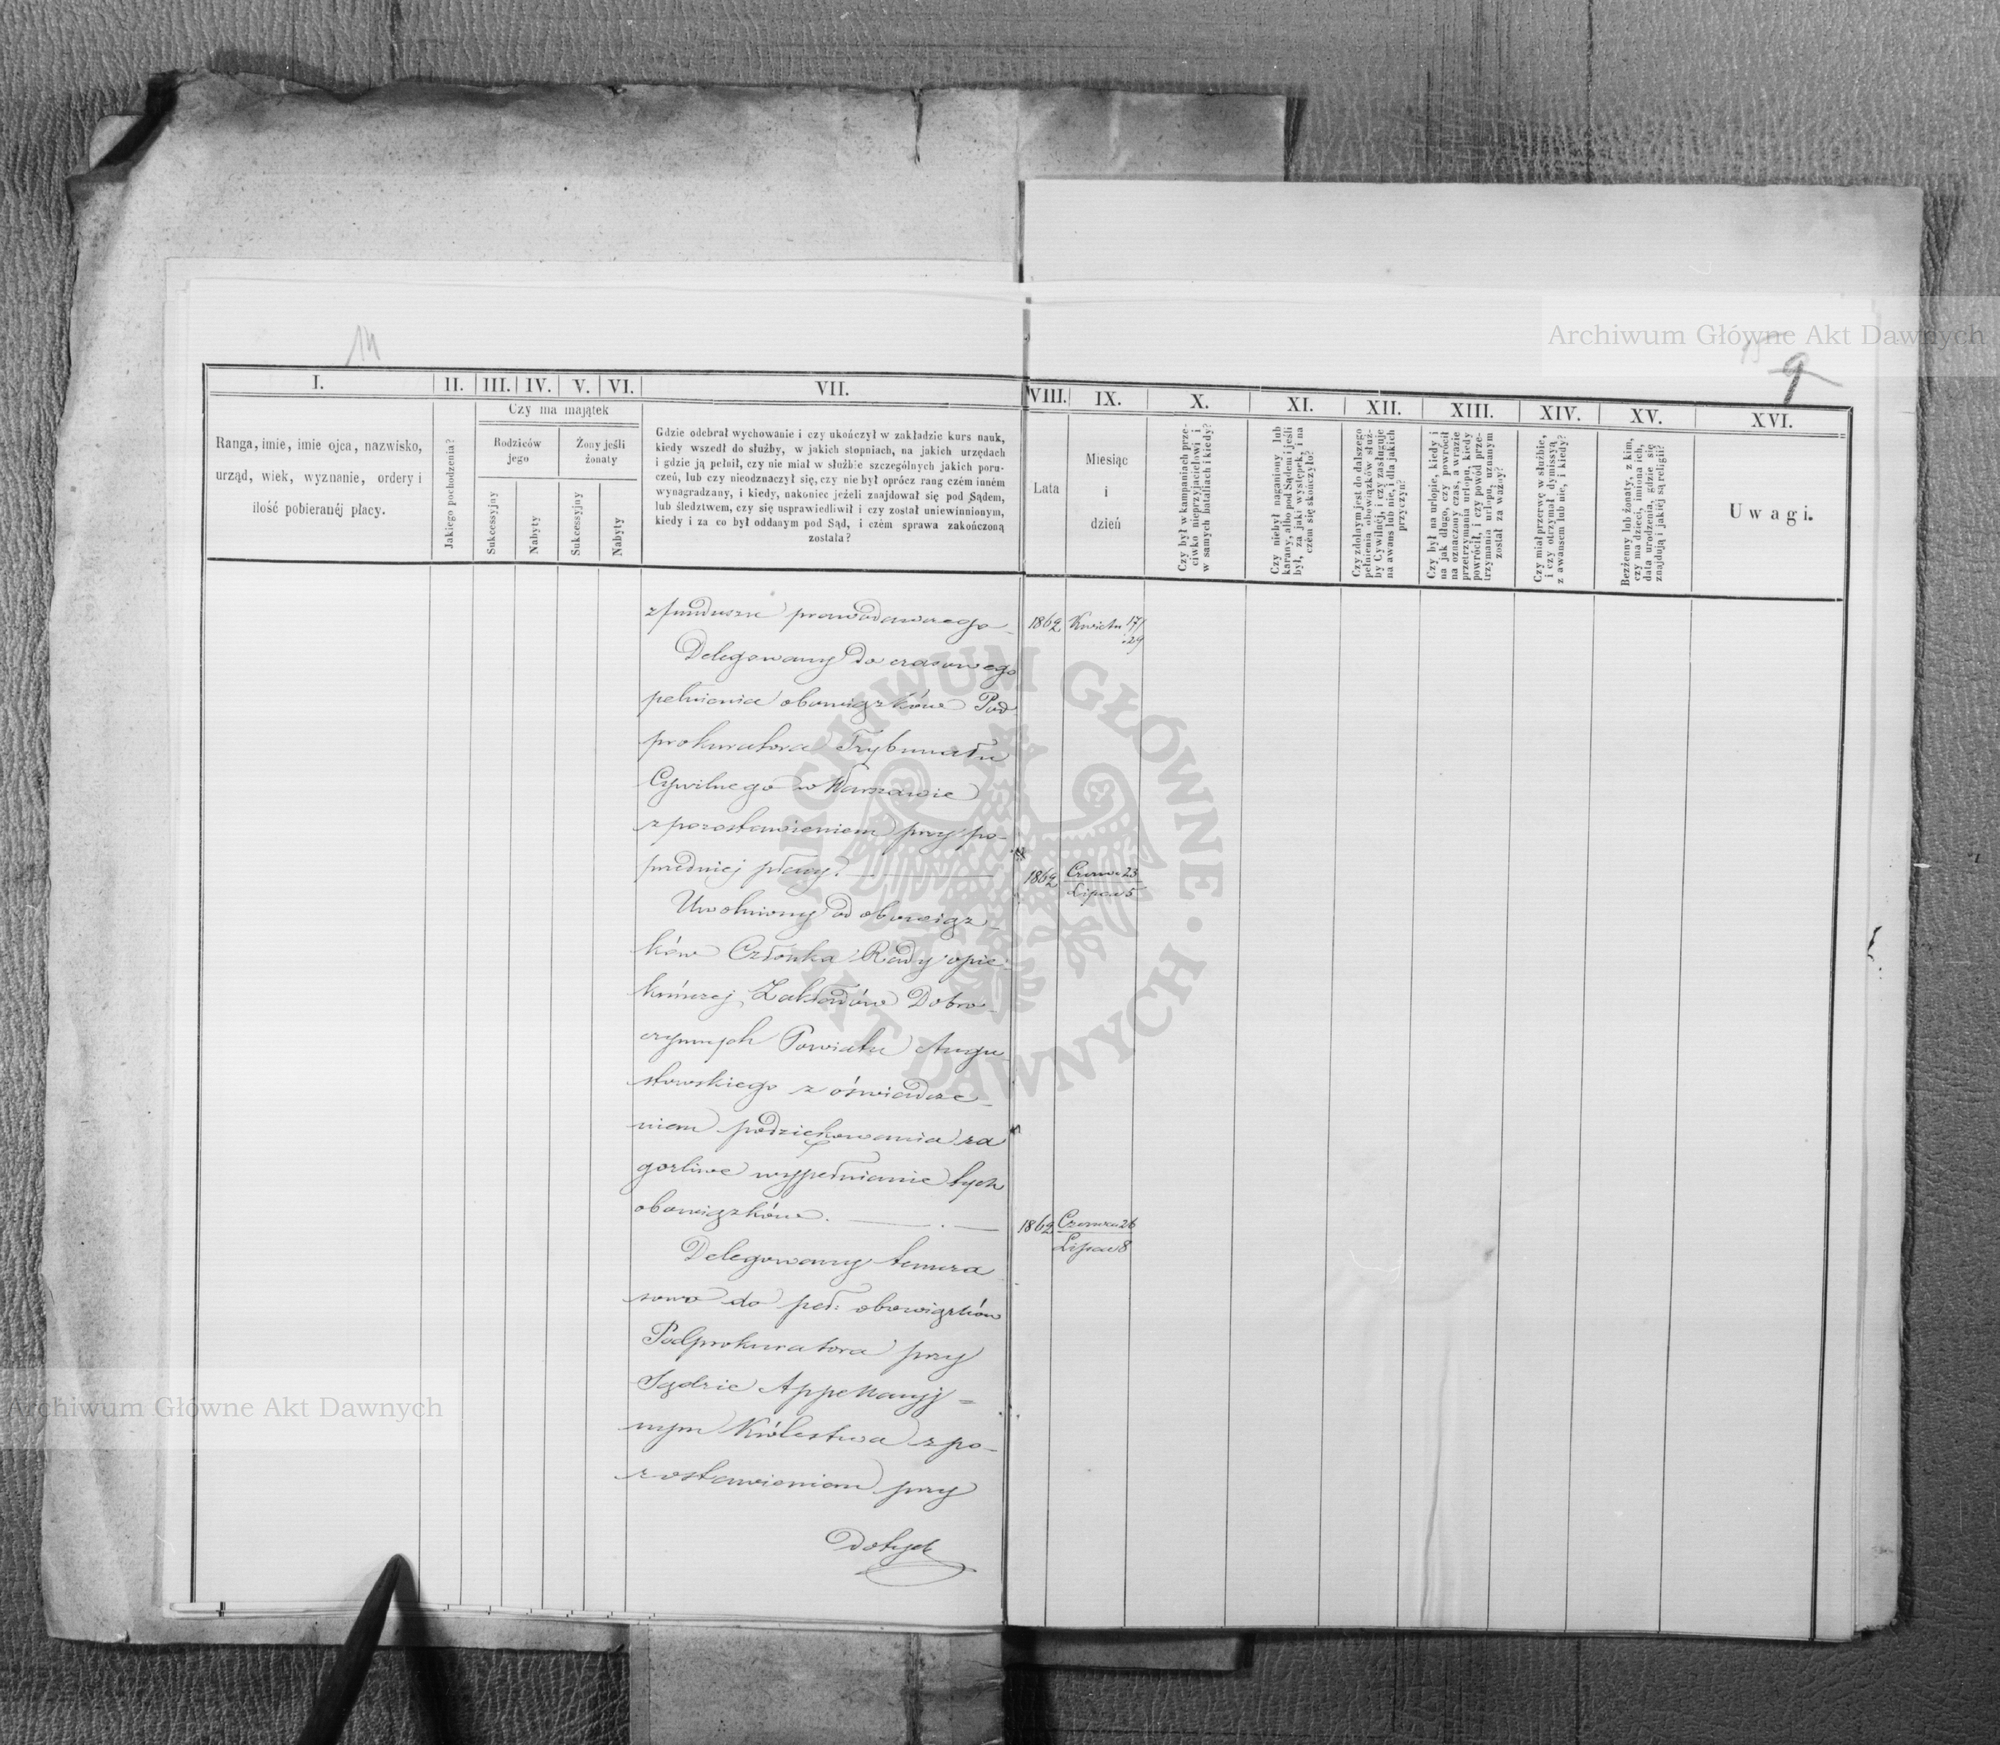 14
Archiwum Główne Akt Dawnych
9
I. II. III. IV. V. VI. VII. VIII. IX. X. XI. XII. XIII. XIV. XV. XVI.
Ranga, imie, imie ojca, nazwisko,
urząd, wiek, wyznanie, ordery i
ilość pobieranéj płacy.
Jakiego pochodzenia?
Czy ma majątek
Rodziców
jego
Żony jeśli
żonaty
Sukcessyjny
Nabyty
Sukcessyjny
Nabyty
Gdzie odebrał wychowanie i czy ukończył w zakładzie kurs nauk,
kiedy wszedł do służby, w jakich stopniach, na jakich urzędach
i gdzie ją pełnił, czy nie miał w służbie szczególnych jakich poru-
czeń, lub czy nieodznaczył się, czy nie był oprócz rang czém inném
wynagradzany, i kiedy, nakoniec jeżeli znajdował się pod Sądem,
lub śledztwem, czy się usprawiedliwił i czy został uniewinnionym,
kiedy i za co był oddanym pod Sąd, i czém sprawa zakończoną
została?
Lata
Miesiąc
i
dzień
Czy był w kampaniach prze-
ciwko nieprzyjacielowi i
w samych bataliach i kiedy?
Czy niebył naganiony lub
karany, albo pod Sądem i jeśli
był, za jaki występek, i na
czém się skończyło?
Czy zdolnym jest do dalszego
pełnienia obowiązków służ-
by Cywilnéj, i czy zasługuje
na awans lub nie, i dla jakich
przyczyn?
Czy był na urlopie, kiedy i
na jak długo, czy powrócił
na oznaczony czas, a w razie
przetrzymania urlopu, kiedy
powrócił, i czy powód prze-
trzymania urlopu, uznanym
został za ważny?
Czy miał przerwę w służbie,
i czy otrzymał dymissyą
z awansem lub nie, i kiedy?
Bezżenny lub żonaty, z kim,
czy ma dzieci, imiona ich,
data urodzenia, gdzie się
znajdują i jakiéj są religii?
Uwagi.
z funduszu prawodawczego 1862 Kwietn 17/
29
Delegowany do czasowego
pełnienia obowiązków Pod-
prokuratora Trybunału
Cywilnego w Warszawie
z pozostawieniem przy po-
przedniej płacy. 1862 Czerwca 23
Lipca 5
Uwolniony od obowiąz-
ków Członka Rady opie-
kuńczej Zakładów Dobro-
czynnych Powiatu Augu-
stowskiego z oświadcze-
niem podziękowania za
gorliwe wypełnianie tych
obowiązków. 1862 Czerwca 26
Lipca 8
Delegowany tymcza-
sowo do peł: obowiązków
Podprokuratora przy
Sądzie Appellacyj=
nym Królestwa z po-
zostawieniem przy
dotych
ARCHIWUM GŁÓWNE · AKT DAWNYCH ·
Archiwum Główne Akt Dawnych